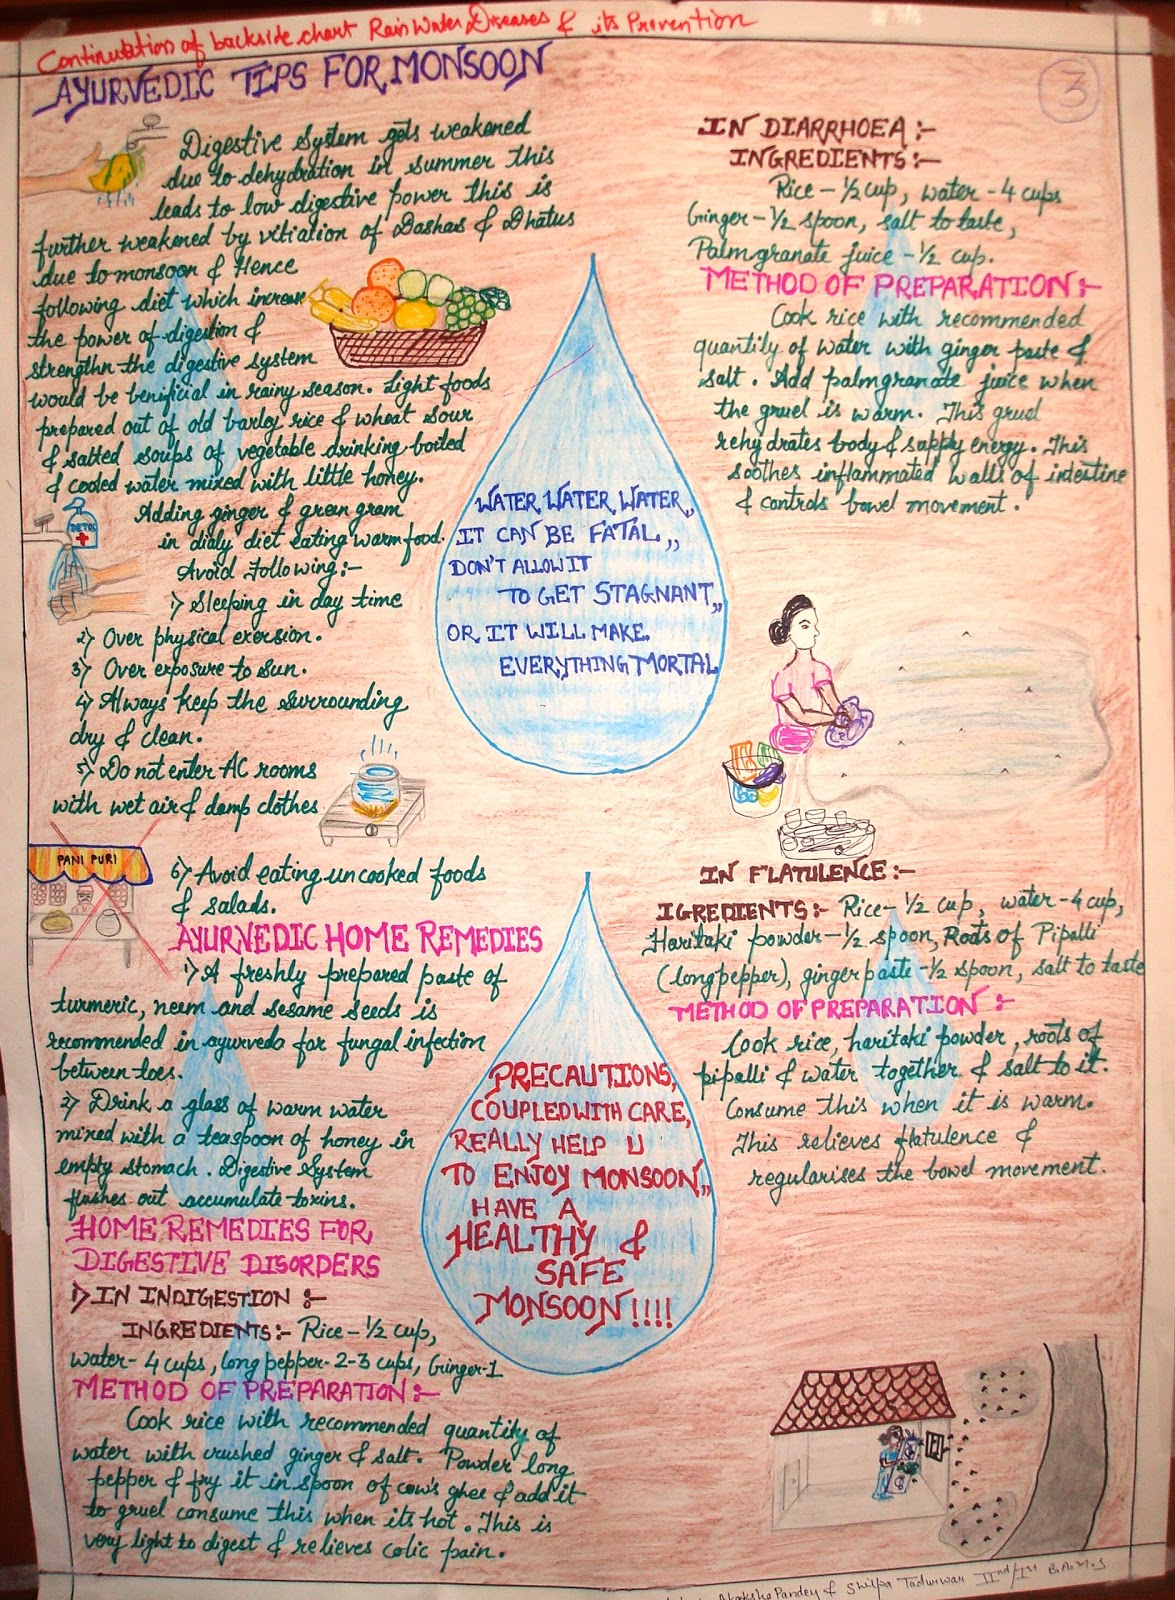 Continutation of backside chart Rain Water Diseases & its Prevention
AYURVEDIC TIPS FOR MONSOON
3
Digestive System gets weakened
due to dehydration in summer this
leads to low digestive power this is
further weakened by vitiation of Dashas & Dhatus
due to monsoon & Hence
following diet which increase
the power of digestion &
strengthn the digestive system
would be benificial in rainy season. Light foods
prepared out of old barley rice & wheat sour
& salted soups of vegetable drinking boiled
& cooled water mixed with little honey.
Adding ginger & green gram
in dialy diet eating warm food.
DETOL
Avoid Following:-
1) Sleeping in day time
2) Over physical exersion.
3) Over exposure to sun.
4) Always keep the surrounding
dry & clean.
5) Do not enter AC rooms
with wet air & damp clothes
PANI PURI
6) Avoid eating uncooked foods
& salads.
AYURVEDIC HOME REMEDIES
1) A freshly prepared paste of
turmeric, neem and sesame seeds is
recommended in ayurveda for fungal infection
between toes.
2) Drink a glass of warm water
mixed with a teaspoon of honey in
empty stomach. Digestive System
flushes out accumulate toxins.
HOME REMEDIES FOR
DIGESTIVE DISORDERS
1) IN INDIGESTION :-
INGREDIENTS:- Rice - 1/2 cup,
water - 4 cups, long pepper - 2-3 cups, Ginger-1
METHOD OF PREPARATION:-
Cook rice with recommended quantity of
water with crushed ginger & salt. Powder long
pepper & fry it in spoon of cow's ghee & add it
to gruel consume this when its hot. This is
very light to digest & relieves colic pain.
WATER, WATER, WATER,
IT CAN BE FATAL,,
DON'T ALLOW IT
TO GET STAGNANT,,
OR IT WILL MAKE
EVERYTHING MORTAL
PRECAUTIONS,
COUPLED WITH CARE,
REALLY HELP U
TO ENJOY MONSOON,,
HAVE A
HEALTHY &
SAFE
MONSOON!!!!
IN DIARRHOEA:-
INGREDIENTS:-
Rice - 1/2 cup, water - 4 cups
Ginger - 1/2 spoon, salt to taste,
Palmgranate juice - 1/2 cup.
METHOD OF PREPARATION:-
Cook rice with recommended
quantity of water with ginger paste &
salt. Add palmgranate juice when
the gruel is warm. This gruel
rehydrates body & supply energy. This
soothes inflammated walls of intestine
& controls bowel movement.
IN FLATULENCE:-
IGREDIENTS:- Rice - 1/2 cup, water - 4 cup,
Haritaki powder - 1/2 spoon, Roots of Pipalli
(long pepper), ginger paste - 1/2 spoon, salt to taste
METHOD OF PREPARATION:-
Cook rice, haritaki powder, roots of
pipalli & water together & salt to it.
Consume this when it is warm.
This relieves flatulence &
regularises the bowel movement.
Pandey & Shilpa IInd/Ist B.A.M.S